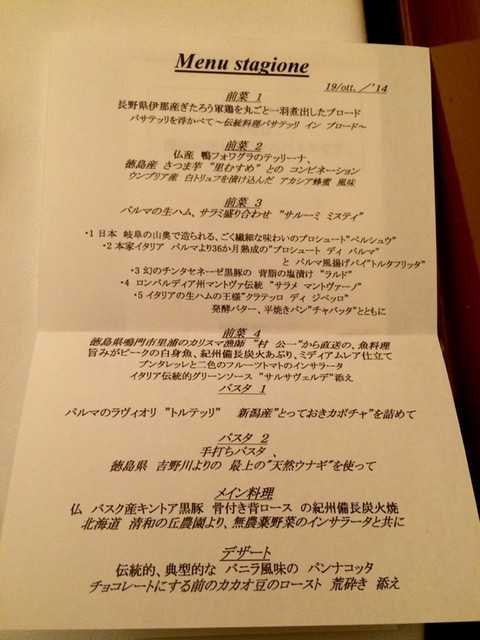 Menu stagione
19/ott. /'14
前菜 1
長野県伊那産ぎたろう軍鶏を丸ごと一羽煮出したブロード
パサテッリを浮かべて ～伝統料理パサテッリ イン ブロード～
前菜 2
仏産 鴨フォワグラのテッリーナ、
徳島産 さつま芋 "里むすめ" との コンビネーション
ウンブリア産 白トリュフを漬け込んだ アカシア蜂蜜 風味
前菜 3
パルマの生ハム、サラミ盛り合わせ "サルーミ ミスティ"
・1 日本 岐阜の山奥で造られる、ごく繊細な味わいのプロシュート"ペルシュウ"
・2 本家イタリア パルマより36か月熟成の"プロシュート ディ パルマ"
と パルマ風揚げパイ"トルタフリッタ"
・3 幻のチンタセネーゼ黒豚の 背脂の塩漬け "ラルド"
・4 ロンバルディア州マントヴァ伝統 "サラメ マントヴァーノ"
・5 イタリアの生ハムの王様"クラテッロ ディ ジベッロ"
発酵バター、平焼きパン"チャバッタ"とともに
前菜 4
徳島県鳴門市里浦のカリスマ漁師 "村 公一"から直送の、魚料理
旨みがピークの白身魚、紀州備長炭火あぶり、ミディアムレア仕立て
プンタレッレと二色のフルーツトマトのインサラータ
イタリア伝統的グリーンソース "サルサヴェルデ"添え
パスタ 1
パルマのラヴィオリ "トルテッリ" 新潟産"とっておきカボチャ"を詰めて
パスタ 2
手打ちパスタ 、
徳島県 吉野川よりの 最上の"天然ウナギ"を使って
メイン料理
仏 バスク産キントア黒豚 骨付き背ロース の紀州備長炭火焼
北海道 清和の丘農園より、無農薬野菜のインサラータと共に
デザート
伝統的、典型的な バニラ風味の パンナコッタ
チョコレートにする前のカカオ豆のロースト 荒砕き 添え